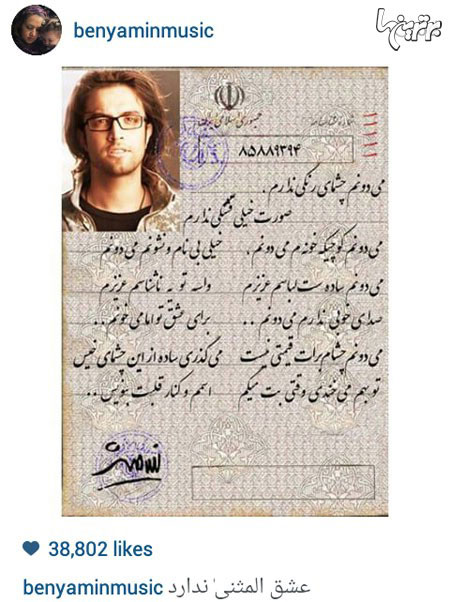 benyaminmusic
برترینها
جمهوری اسلامی ایران
۸۵۸۸۹۳۹۴
می دونم چشمای رنگی ندارم .
صورت خیلی قشنگی ندارم
می دونم کوچیکه خونم می دونم . خیلی بی نام و نشونم می دونم
می دونم ساده ست لباسم عزیزم واسه تو یه ناشناسم عزیزم
صدای خوبی ندارم می دونم .. برای عشق تو اما می خونم ..
می دونم چشام برات قیمتی نیست می گذری ساده از این چشمای خیس
تو بهم می خندی وقتی بت میگم اسمم و کنار قلبت بنویس ..
38,802 likes
benyaminmusic عشق المثنیٰ ندارد